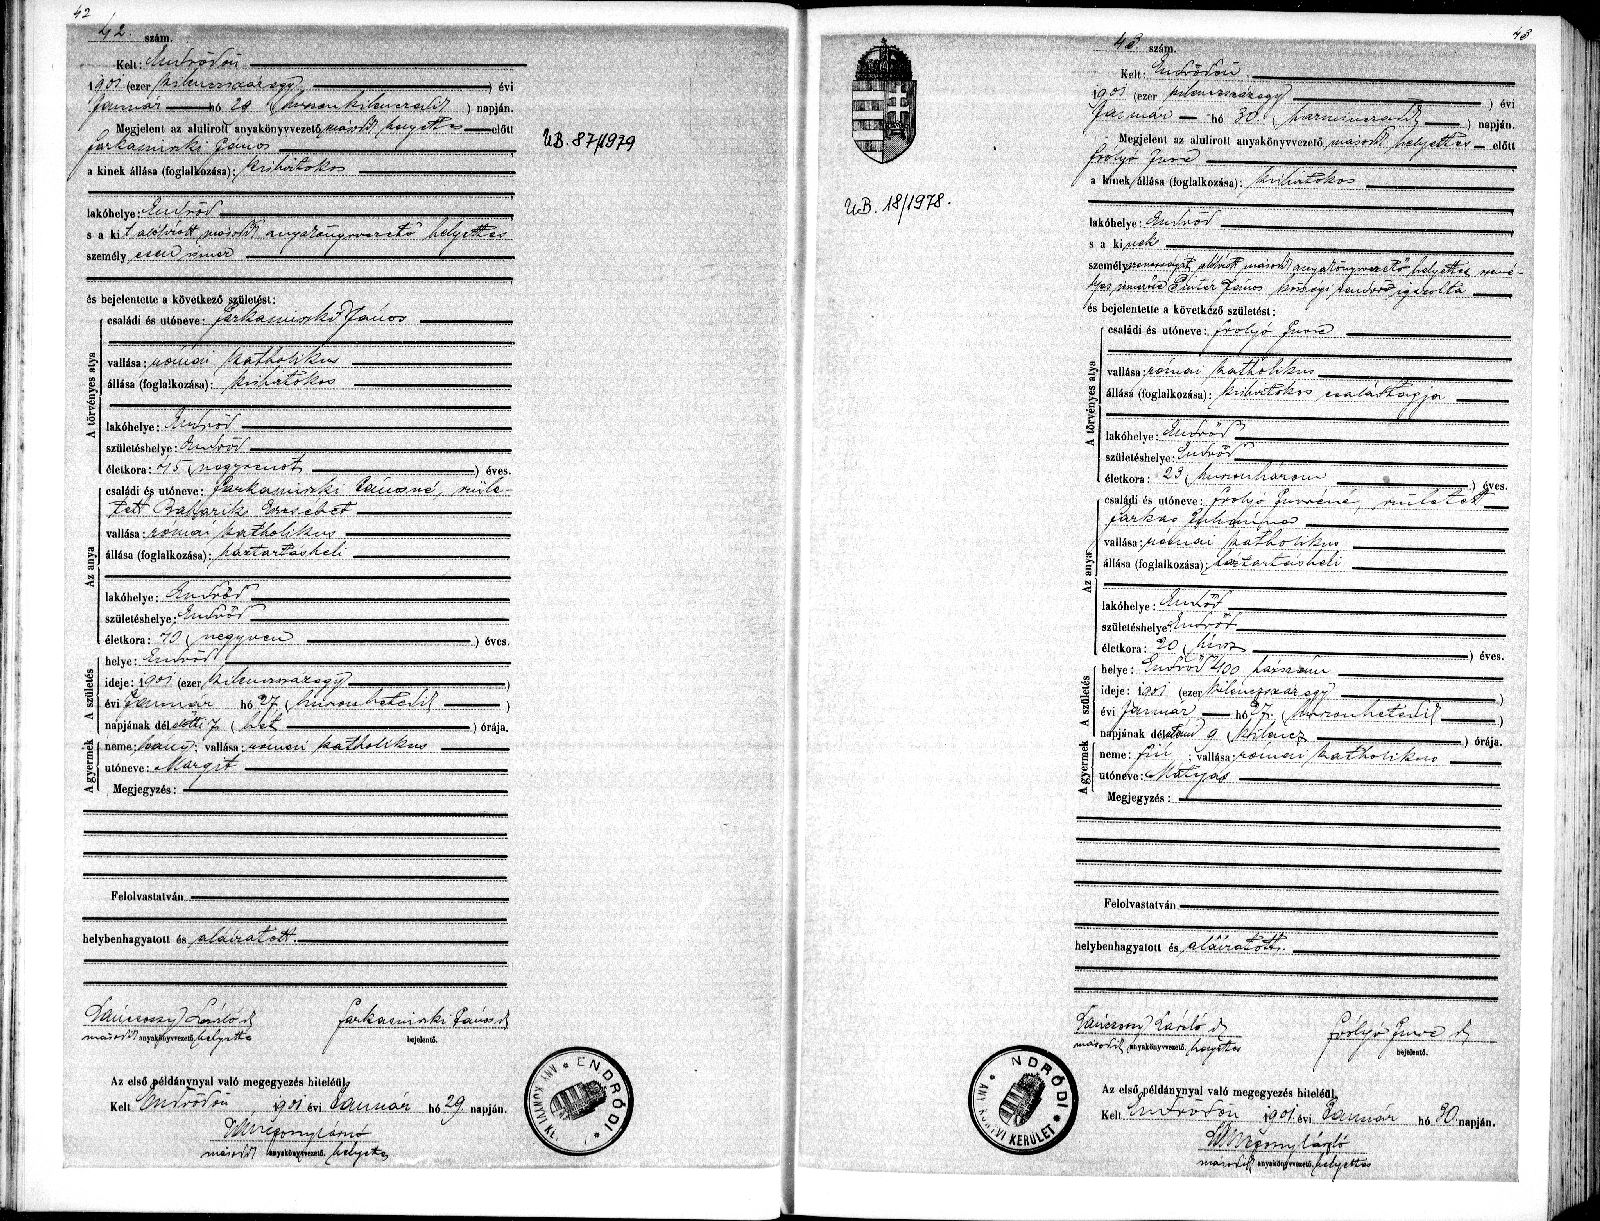 42
42. szám.
Kelt: Endrődön
1901 (ezer kilencszázegy) évi
Január hó 29 (huszonkilencedik) napján.
Megjelent az alulirott anyakönyvvezető másodh helyettes előtt
Farkasinszki János
a kinek állása (foglalkozása): kisbirtokos
lakóhelye: Endrőd
s a kit alólirott másodh anyakönyvvezető helyettes
személyesen ismer
és bejelentette a következő születést:
A törvényes atya
családi és utóneve: Farkasinszki János
vallása: római katholikus
állása (foglalkozása): kisbirtokos
lakóhelye: Endrőd
születéshelye: Endrőd
életkora: 45 (negyvenöt) éves.
Az anya
családi és utóneve: Farkasinszki Jánosné, szüle-
tett Erzsébet
vallása: római katholikus
állása (foglalkozása): háztartásbeli
lakóhelye: Endrőd
születéshelye: Endrőd
életkora: 40 (negyven) éves.
A születés
helye: Endrőd
ideje: 1901 (ezer kilencszázegy)
évi Január hó 27. (huszonhetedik)
napjának délelőtti 7 (hét) órája.
A gyermek
neme: leány; vallása: római katholikus
utóneve: Margit
Megjegyzés:
Felolvastatván
helybenhagyatott és aláiratott.
László
Farkasinszki János
másodh anyakönyvvezető helyettes
bejelentő.
Az első példánynyal való megegyezés hiteléül,
Kelt Endrődön, 1901 évi Január hó 29 napján.
másodh anyakönyvvezető helyettes
ENDRŐDI
U.B. 87/1979
43
43. szám.
Kelt: Endrődön
1901 (ezer kilencszázegy) évi
Január hó 30 (harmincadik) napján.
Megjelent az alulirott anyakönyvvezető másodh helyettes előtt
Frólyó Imre
a kinek állása (foglalkozása): kisbirtokos
lakóhelye: Endrőd
s a kinek
személyazonosságát alólirott másodh anyakönyvvezető helyettes szemé-
lyes ismerőse Pintér János községi rendőr igazolta
és bejelentette a következő születést:
A törvényes atya
családi és utóneve: Frólyó Imre
vallása: római katholikus
állása (foglalkozása): kisbirtokos családtagja
lakóhelye: Endrőd
születéshelye: Endrőd
életkora: 23 (huszonhárom) éves.
Az anya
családi és utóneve: Frólyó Imréné, született
Farkas Juliánna
vallása: római katholikus
állása (foglalkozása): háztartásbeli
lakóhelye: Endrőd
születéshelye: Endrőd
életkora: 20 (húsz) éves.
A születés
helye: Endrőd 400 házszám
ideje: 1901 (ezer kilencszázegy)
évi Január hó 27. (huszonhetedik)
napjának délután 9 (kilencz) órája.
A gyermek
neme: fiú; vallása: római katholikus
utóneve: Mátyás
Megjegyzés:
Felolvastatván
helybenhagyatott és aláiratott.
László
Frólyó Imre
másodh anyakönyvvezető helyettes
bejelentő.
Az első példánynyal való megegyezés hiteléül,
Kelt Endrődön 1901 évi Január hó 30 napján.
másodh anyakönyvvezető helyettes
NDRŐDI
KERÜLET
U.B. 18/1978.